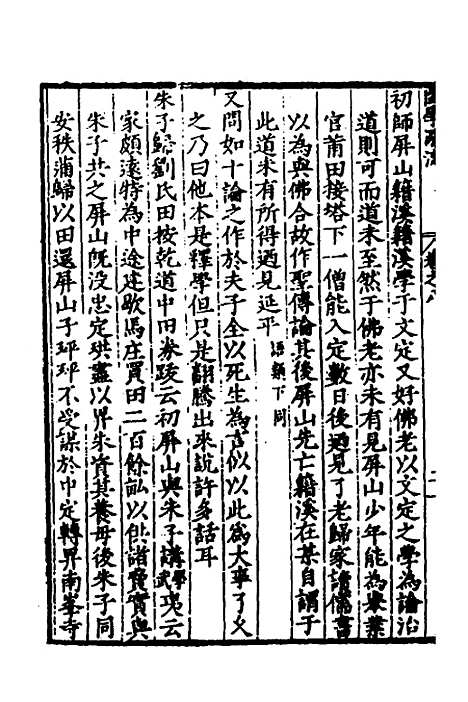 初師屏山籍溪籍溪學于文定又好佛老以文定之學為論治
道則可而道未至然于佛老亦未有見屏山少年能為舉業
官莆田接塔下一僧能入定數日後迺見了老歸家讀儒書
以為與佛合故作聖傳論其後屏山先亡籍溪在某自謂于
此道未有所得迺見延平 語類下同
又問如十論之作於夫子全以死生為言似以此為大事了久
之乃曰他本是釋學但只是翻騰出來說許多話耳
朱子歸劉氏田按乾道中田券跋云初屏山與朱子講學武夷云
家頗遠特為中途建歇馬庄買田二百餘畝以供諸費實與
朱子共之屏山既沒忠定珙盡以畀朱資其養母後朱子同
安秩滿歸以田還屏山子玶玶不受謀於忠定轉畀南峯寺